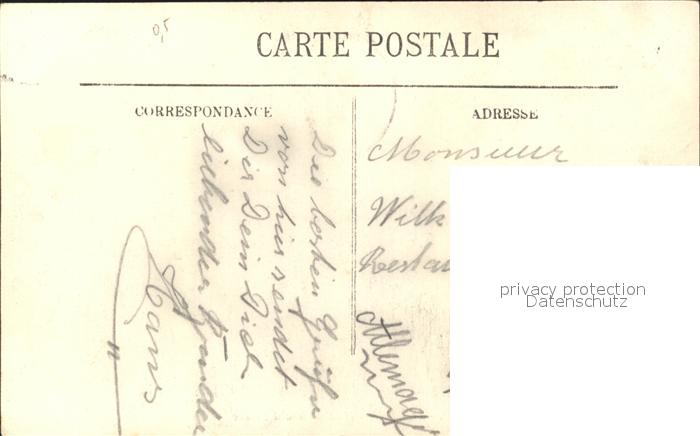 0,5
CARTE POSTALE
CORRESPONDANCE
ADRESSE
Die besten Grüße
von hier sendet
Dir Dein Dich
liebender Bruder
Hans
Monsieur
Wilh
Restau
Allemag
privacy protection
Datenschutz